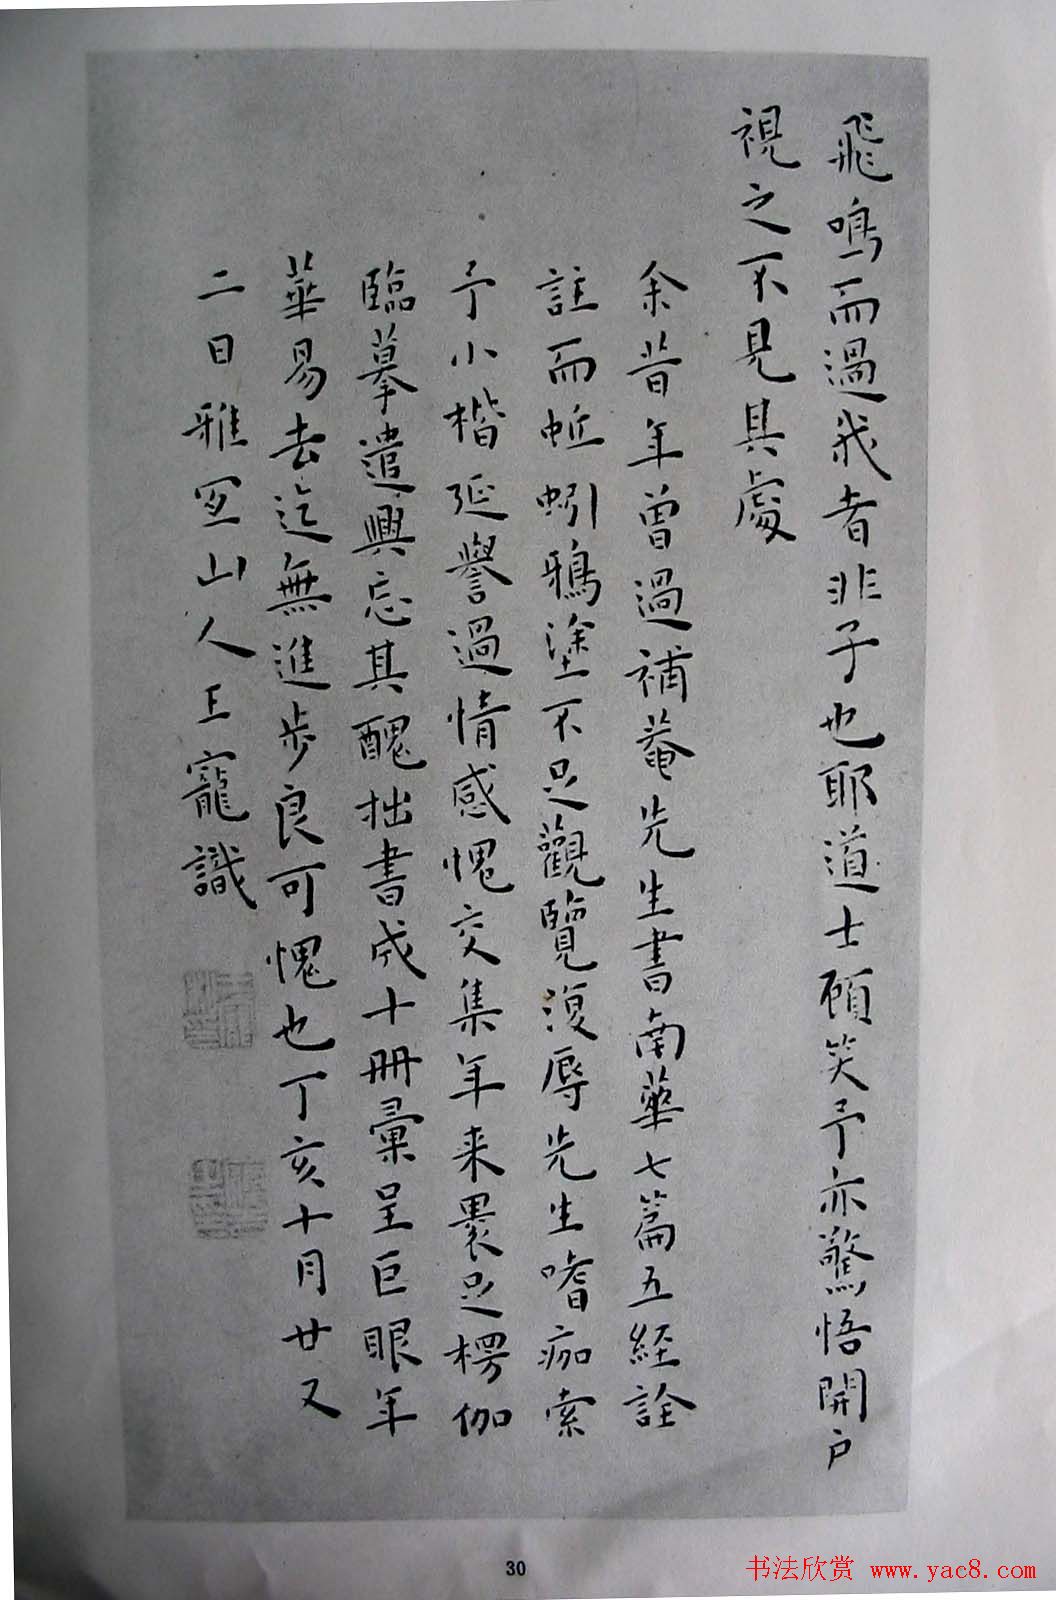 飛鳴而過我者非子也耶道士顧笑予亦驚悟開户
視之不見其處
余昔年曾過補菴先生書南華七篇五經詮
註而蚯蚓鴉塗不足觀覽復辱先生嗜痂索
予小楷延譽過情感愧交集年来畏足楞伽
臨摹遣興忘其醜拙書成十冊彙呈巨眼年
華易去迄無進步良可愧也丁亥十月廿又
二日雅宜山人王寵識
30
书法欣赏 www.yac8.com